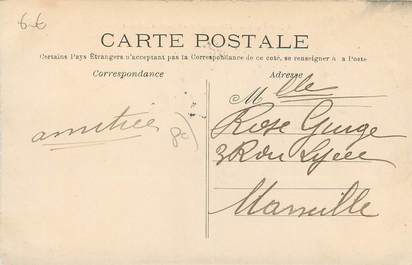 6-6
CARTE POSTALE
Certains Pays Étrangers n'acceptant pas la Correspondance de ce coté, se renseigner à a Poste
Correspondance
Adresse
Mlle
amitiés
Rose Gurge
3 R du Lycée
Marseille